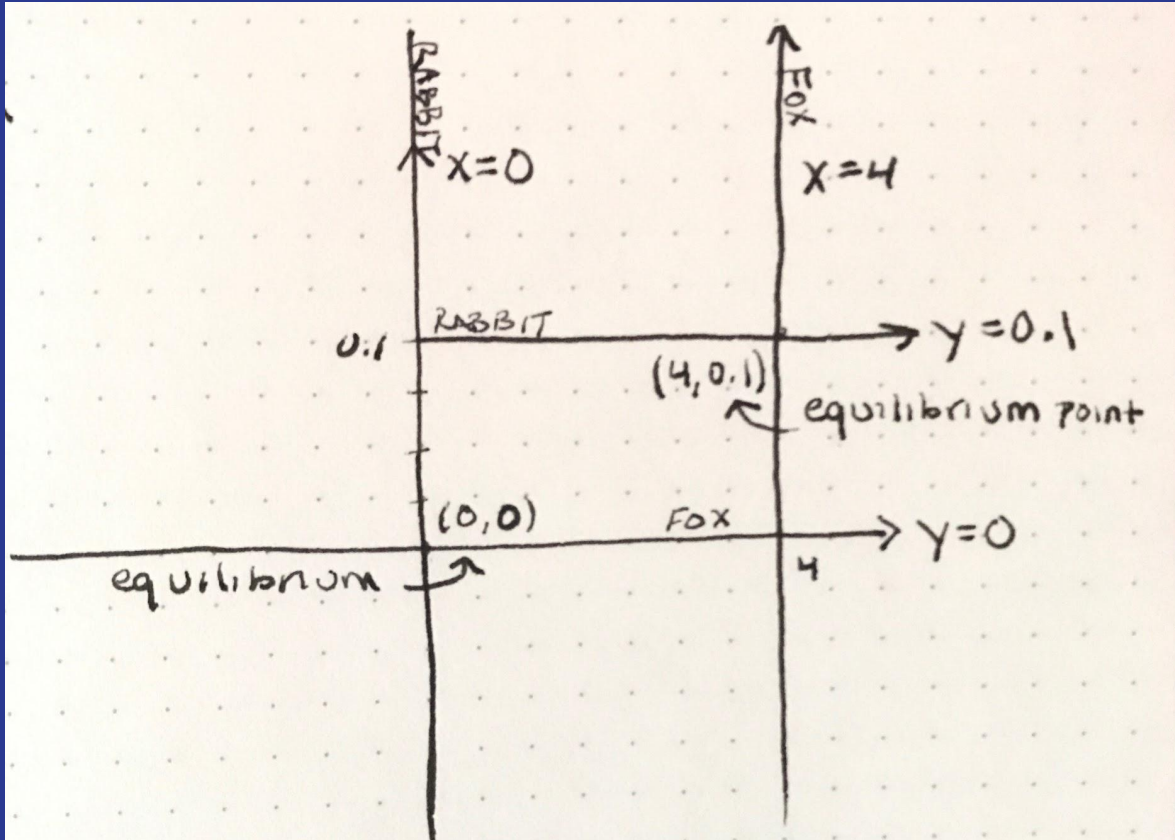 RABBIT
FOX
X=0
X=4
RABBIT
0.1
y=0.1
(4,0.1)
equilibrium point
(0,0)
FOX
y=0
4
equilibrium